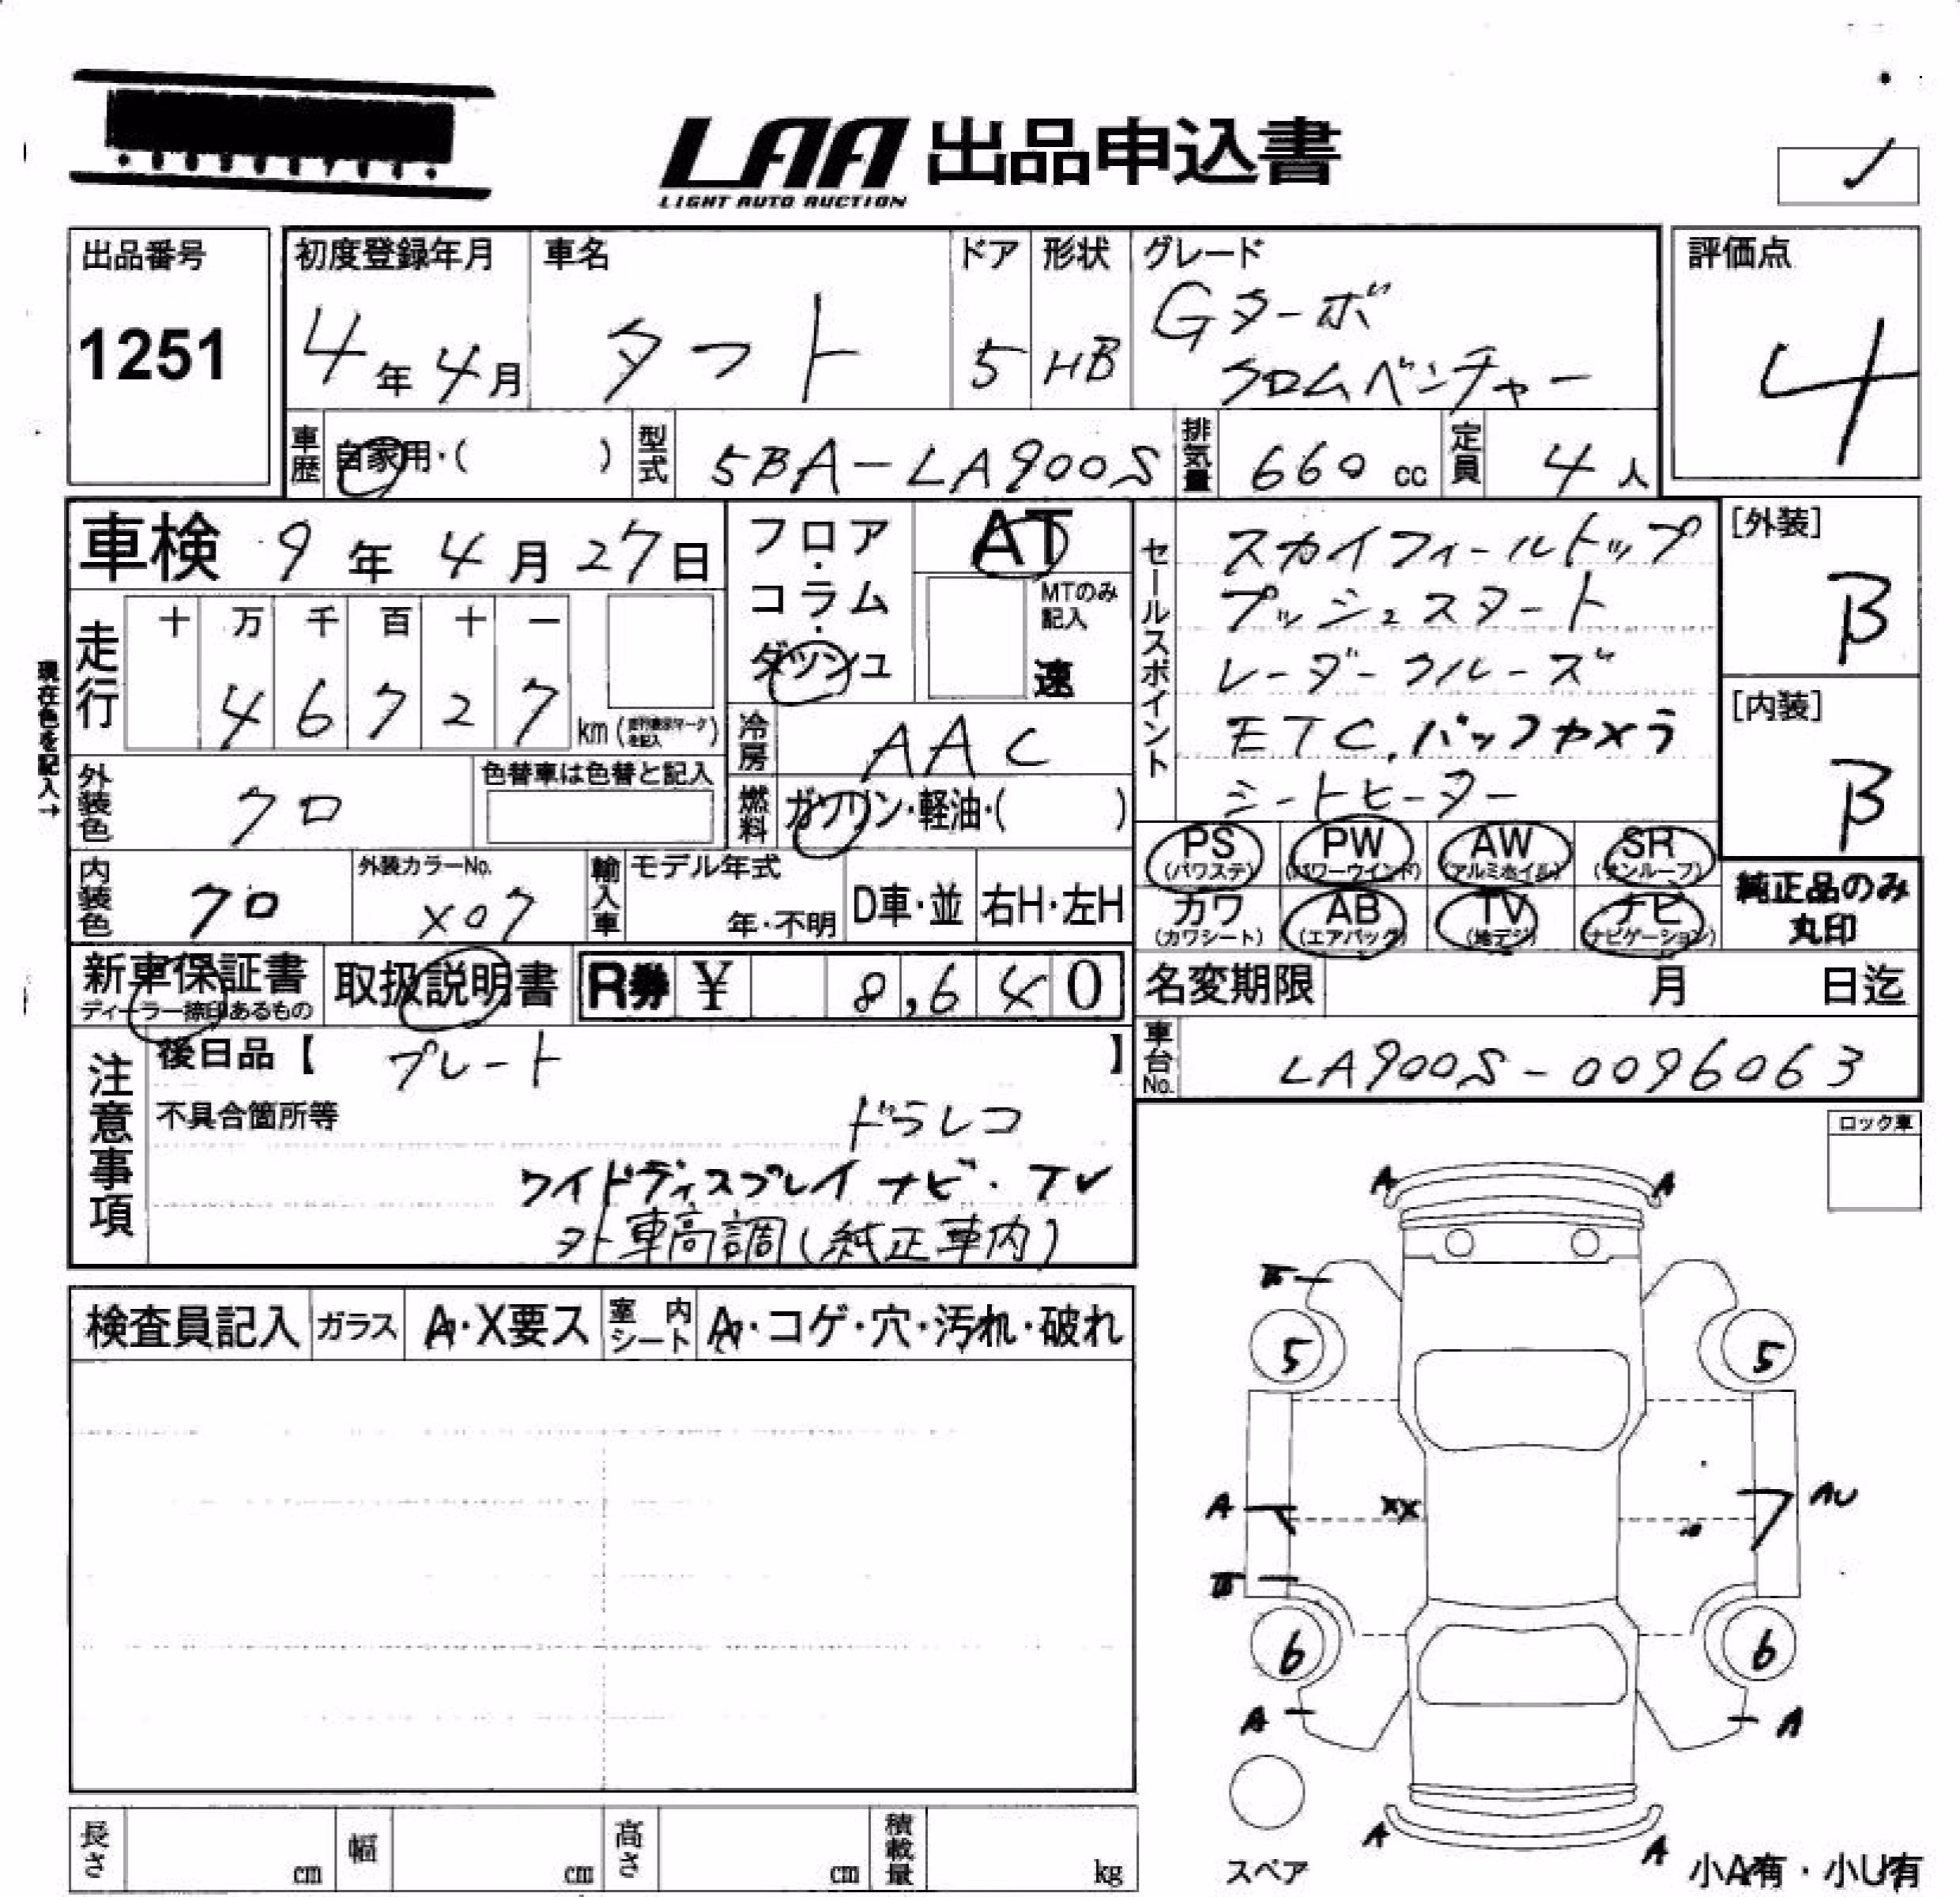 LAA 出品申込書
LIGHT AUTO AUCTION
✓
出品番号
1251
初度登録年月
4年4月
車名
タフト
ドア
5
形状
HB
グレード
Gターボ
クロムベンチャー
評価点
4
車歴
自家用・( )
型式
5BA-LA900S
排気量
660 cc
定員
4人
車検 9年4月27日
フロア・コラム・ダッシュ
AT
MTのみ記入
速
セールスポイント
スカイフィールトップ
プッシュスタート
レーダークルーズ
ETC.バックカメラ
シートヒーター
[外装]
B
[内装]
B
現在色を記入→
走行
十 万 千 百 十 一
4 6 7 2 7
km (走行距離マークを記入)
冷房
AAC
外装色
クロ
色替車は色替と記入
燃料
ガソリン・軽油・( )
PS
(パワステ)
PW
(パワーウインド)
AW
(アルミホイル)
SR
(サンルーフ)
カワ
(カワシート)
AB
(エアバッグ)
TV
(地デジ)
ナビ
(ナビゲーション)
純正品のみ
丸印
内装色
クロ
外装カラーNo.
X07
輸入車
モデル年式
年・不明
D車・並
右H・左H
新車保証書
ディーラー捺印あるもの
取扱説明書
R券 ¥ 8,640
名変期限 月 日迄
車台No.
LA900S-0096063
注意事項
後日品【 プレート 】
不具合箇所等
ドラレコ
ワイドディスプレイナビ・TV
外車高調(純正車内)
ロック車
検査員記入
ガラス
A・X要ス
室内シート
A・コゲ・穴・汚れ・破れ
A A
5 5
A XX AU
6 6
A A
A A
スペア
小A有・小U有
長さ cm
幅 cm
高さ cm
積載量 kg